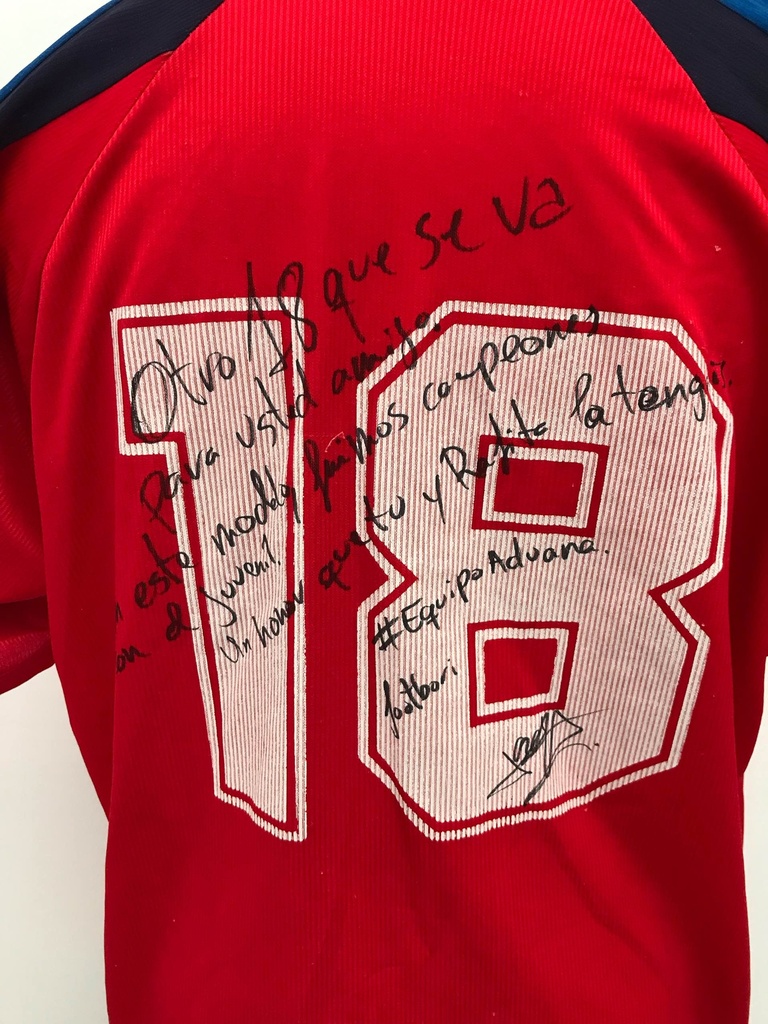 18
Otro 18 que se va
para usted amigo.
en este modelo fuimos campeones
con el juvenil.
Un honor que tu y Rafita la tengais.
#EquipoAduana.
footbori